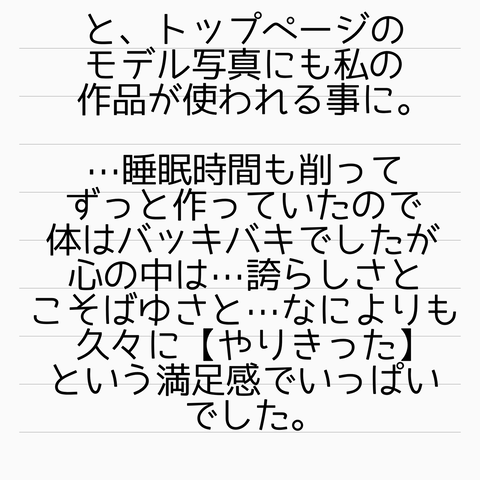 と、トップページの
モデル写真にも私の
作品が使われる事に。
…睡眠時間も削って
ずっと作っていたので
体はバッキバキでしたが
心の中は…誇らしさと
こそばゆさと…なによりも
久々に【やりきった】
という満足感でいっぱい
でした。